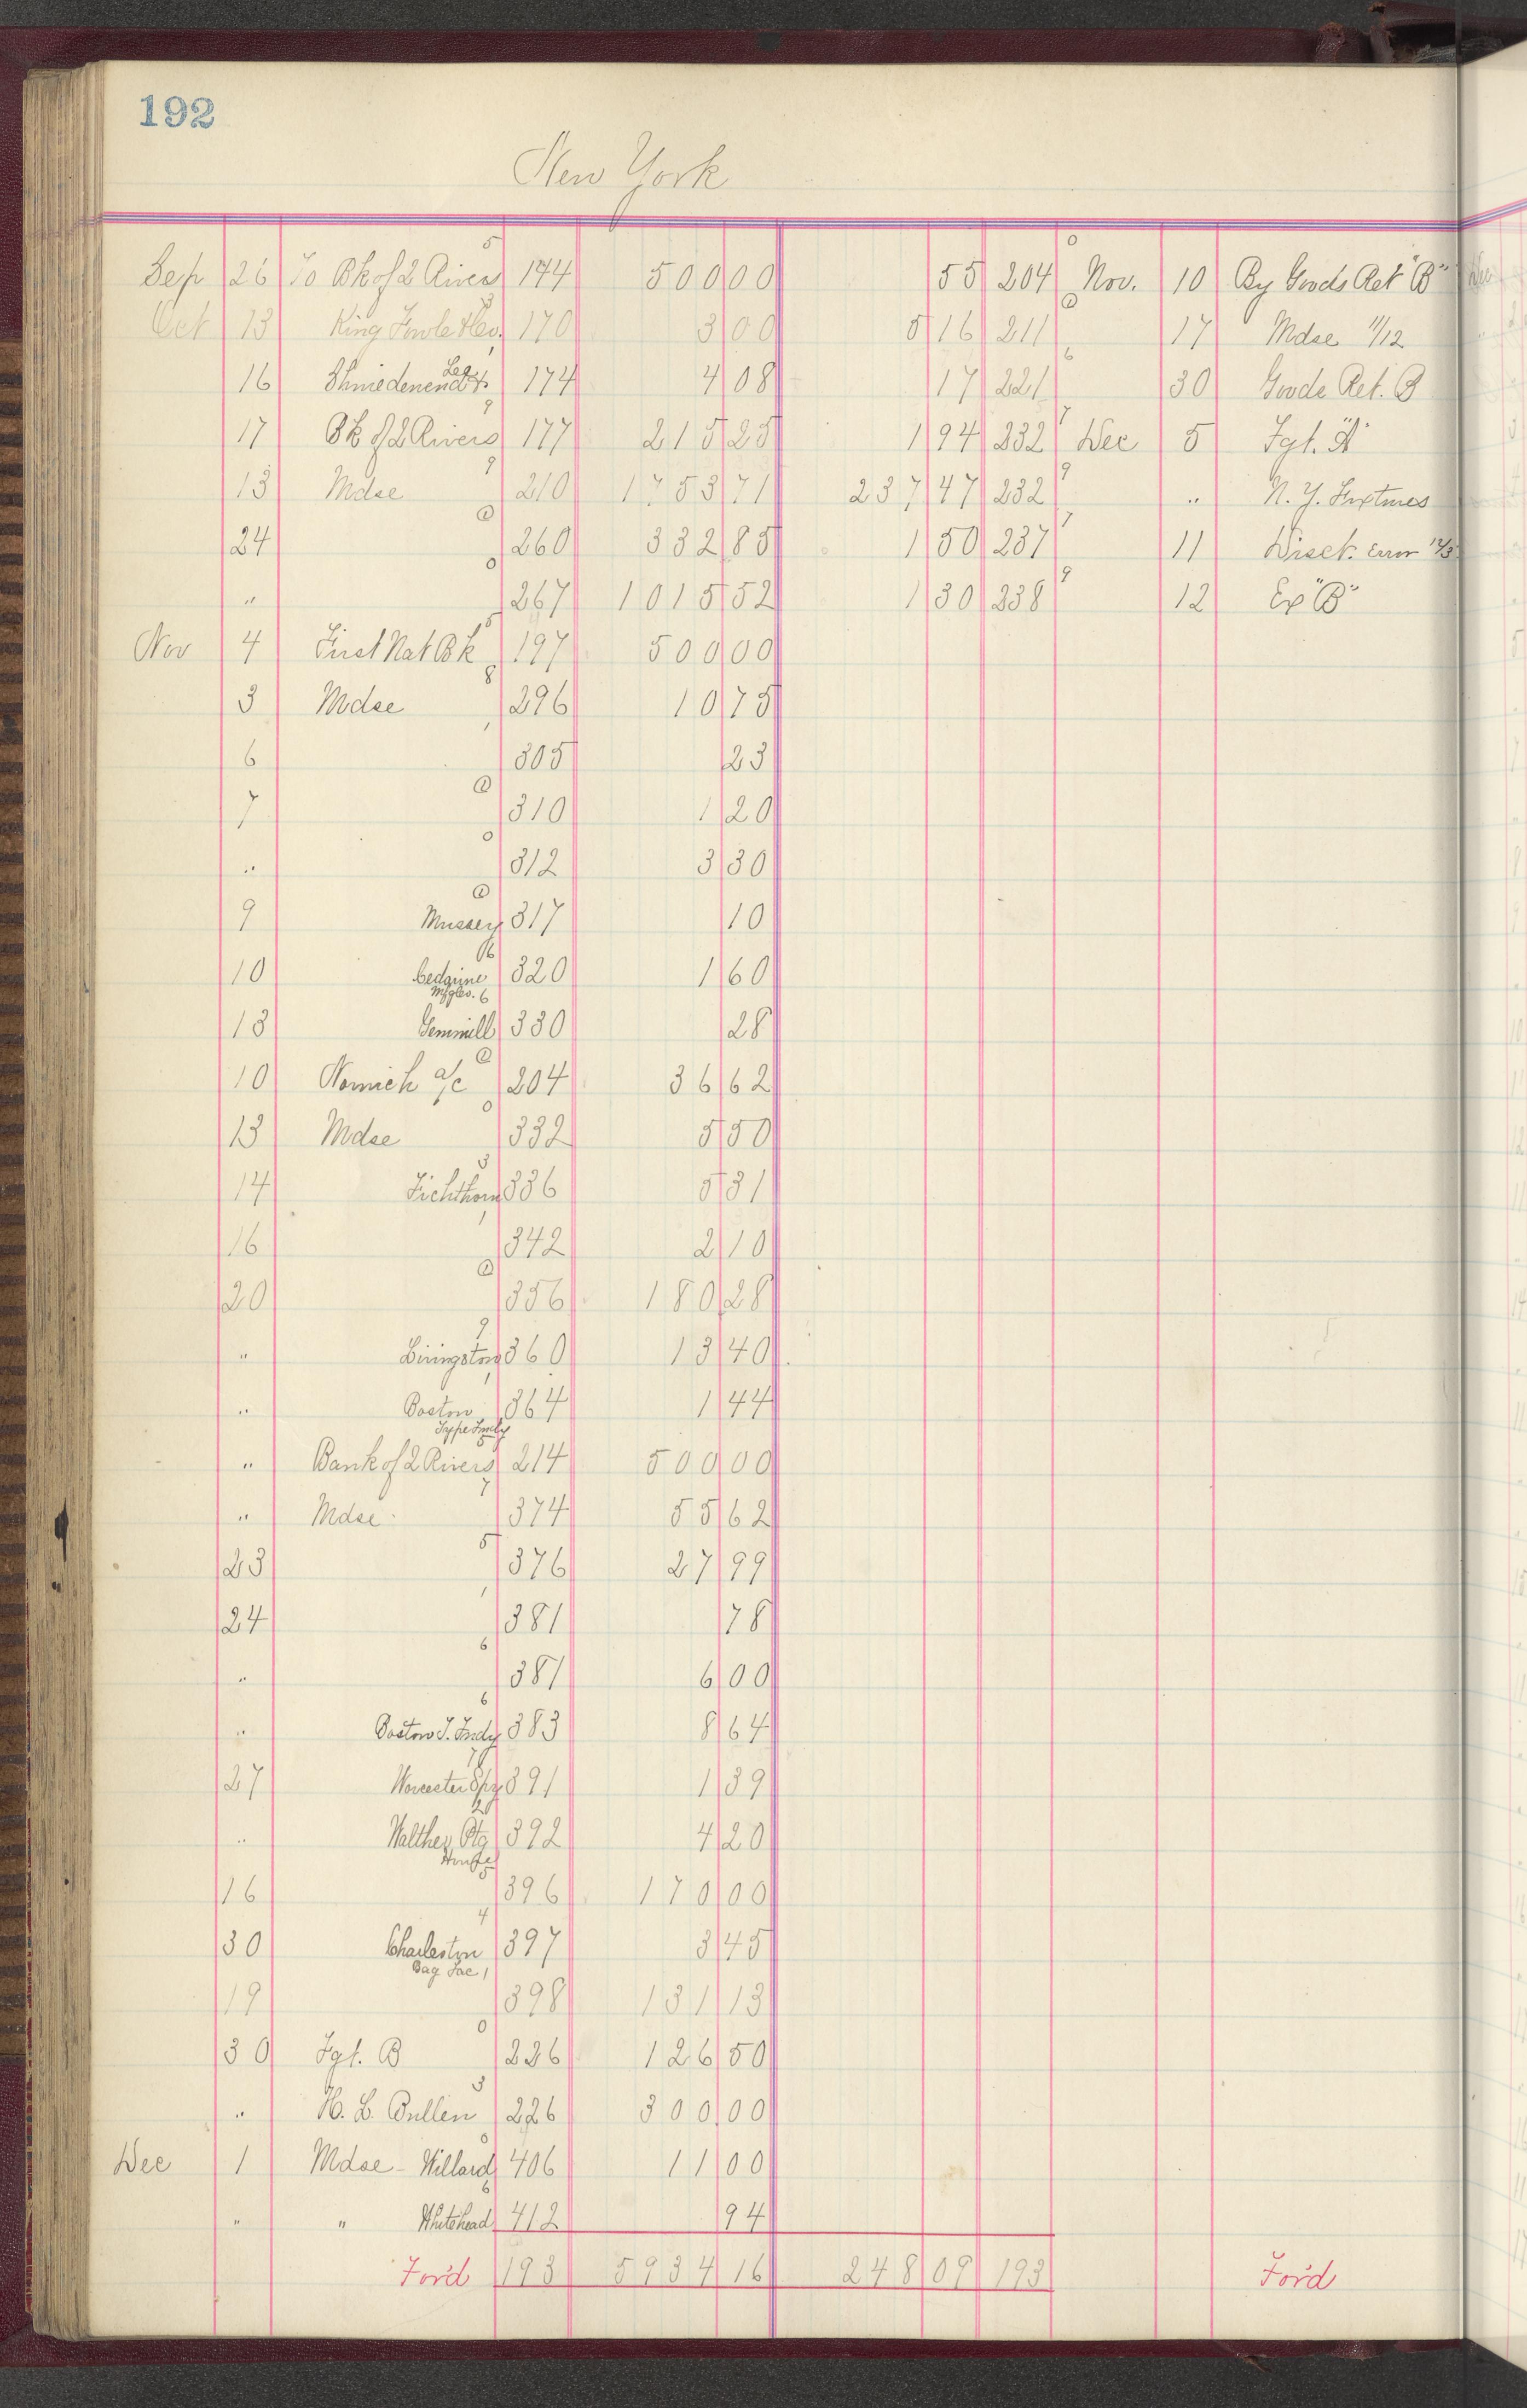 192
New York
Sep 26 To Bk of 2 Rivers 144 500 00 55 204 Nov. 10 By Goods Ret "B"
Oct 13 King Fowle & Co. 170 3 00 5 16 211 " 17 Mdse 11/12
16 Shniedenend & Lee 174 4 08 17 221 30 Goods Ret. B
17 Bk of 2 Rivers 177 215 25 1 94 232 Dec 5 Fgt. "A"
13 Mdse 210 1753 71 237 47 232 " N. Y. Fixtures
24 260 332 85 1 50 237 11 Disct. Error 12/5
" 267 1015 52 1 30 238 12 Ex "B"
Nov 4 First Nat Bk 197 500 00
3 Mdse 296 10 75
6 305 23
7 310 1 20
" 312 3 30
9 Mussey 317 10
10 Cedarine Mfg Co. 320 1 60
13 Gemmill 330 28
10 Norwich a/c 204 36 62
13 Mdse 332 5 50
14 Fichthorn 336 5 31
16 342 2 10
20 356 180 28
" Livingston 360 13 40
" Boston Type Fndy 364 1 44
" Bank of 2 Rivers 214 500 00
" Mdse 374 55 62
23 376 27 99
24 381 78
" 381 6 00
" Boston T. Fndy 383 8 64
27 Worcester Spy 391 1 39
" Walther Ptg House 392 4 20
16 396 170 00
30 Charleston Bag Fac 397 3 45
19 398 131 13
30 Fgt. B 226 126 50
" H. L. Bullen 226 300 00
Dec 1 Mdse - Willard 406 11 00
" " Whitehead 412 94
For'd 193 5934 16 248 09 193 For'd